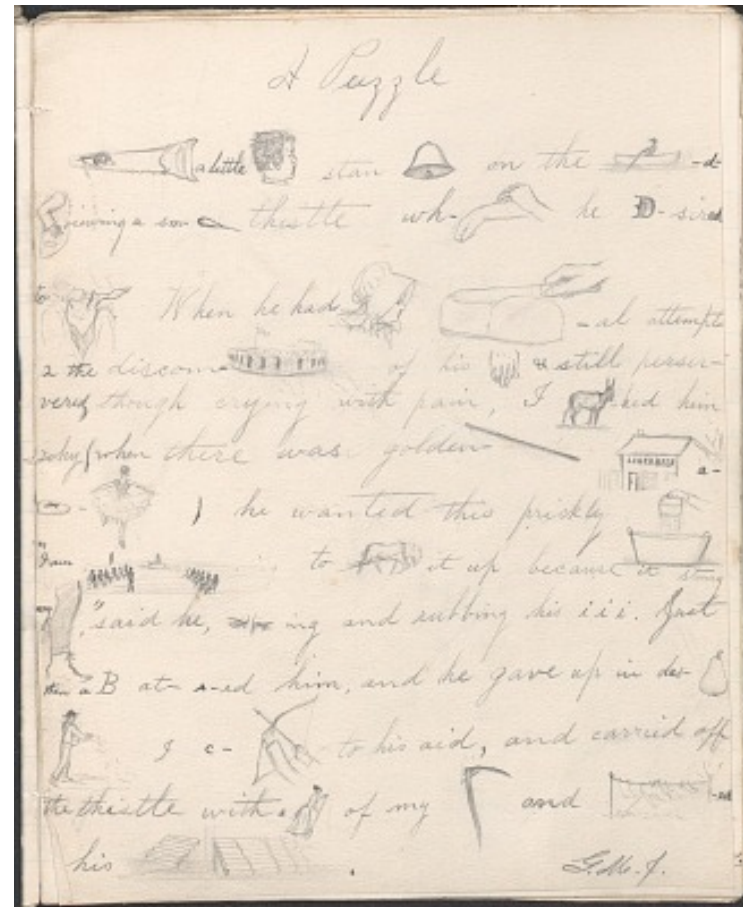 A Puzzle
a little stan on the -d-
viewing a son thistle wh- he D-sired
to When he had -al attempts
2 the discom of his & still perser-
vered though crying with pain, I -ked him
why (when there was golden- a-
- ) he wanted this prickly
"I am to it up because it stung
my ," said he, ing and rubbing his i i i. Just
then a B at- a-ed him, and he gave up in des-
I c- to his aid, and carried off
the thistle with a of my and -ed
his .